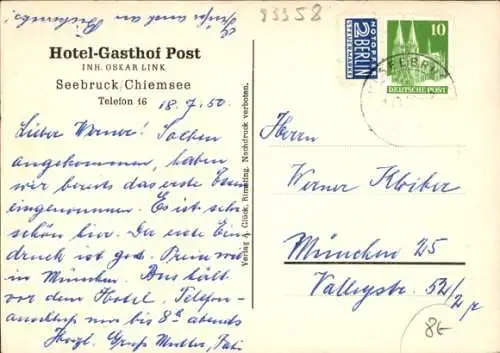 93958
Hotel-Gasthof Post
INH. OSKAR LINK
Seebruck/Chiemsee
Telefon 16
18.7.50.
Lieber Werner! Soeben
angekommen, haben
wir bereits das erste Essen
eingenommen. Es ist sehr
schön hier. Der erste Ein-
druck ist gut.
in München. Bus hält
vor dem Hotel. Telefon-
anschluss nur bis 8h abends
Gruß Mutter,
Verlag J. Glück, Rimsting. Nachdruck verboten.
NOTOPFER
2 BERLIN
STEUERMARKE
10
DEUTSCHE POST
SEEBRU
Herrn
Werner Kloiber
München 25
Valleystr. 52/2 r
8E